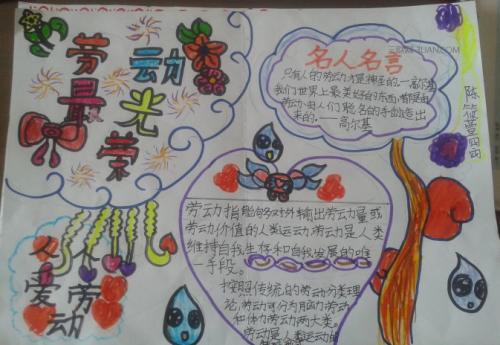 劳动
最光
荣
名人名言
只有人的劳动才是神圣的。—高尔基
我们世界上最美好的东西,都是由
劳动、由人们聪名的手创造出
来的。——高尔基
劳动指能够对外输出劳动量或
劳动价值的人类运动,劳动是人类
维持自我生存和自我发展的唯
一手段。
按照传统的劳动分类理
论,劳动可分为脑力劳动
和体力劳动两大类。
劳动是人类运动的
人人
爱劳
动